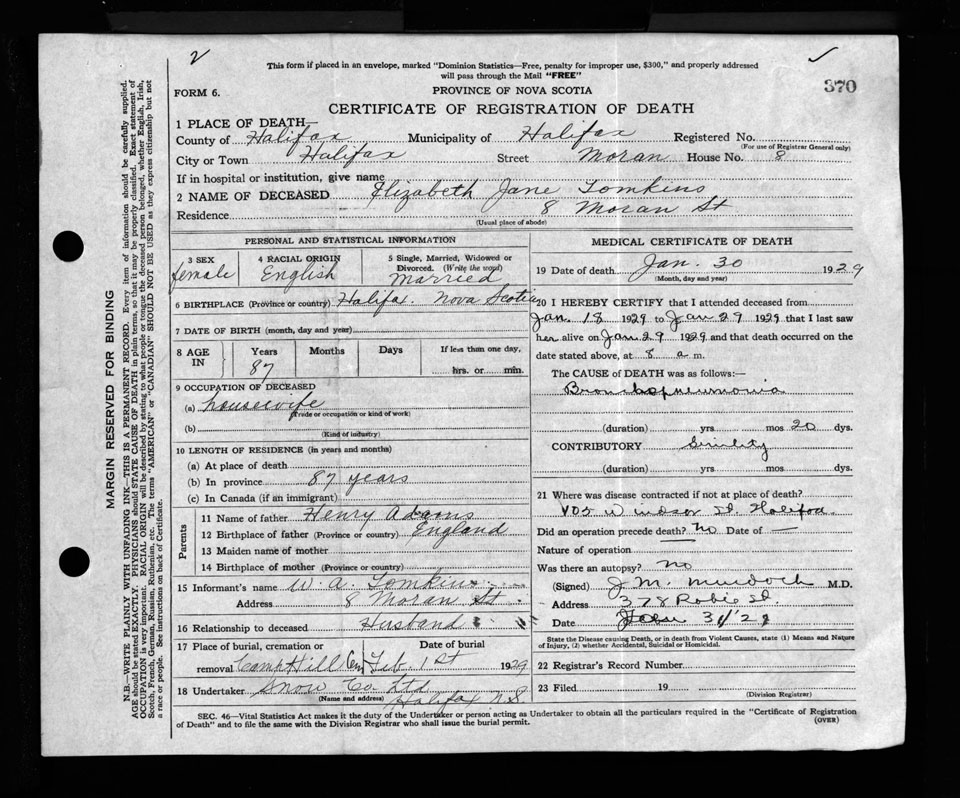 2
This form if placed in an envelope, marked "Dominion Statistics—Free, penalty for improper use, $300," and properly addressed
will pass through the Mail "FREE"
370
FORM 6.
PROVINCE OF NOVA SCOTIA
CERTIFICATE OF REGISTRATION OF DEATH
1 PLACE OF DEATH—
County of Halifax Municipality of Halifax Registered No.
(For use of Registrar General only)
City or Town Halifax Street Moran House No. 8
If in hospital or institution, give name
2 NAME OF DECEASED Elizabeth Jane Tomkins
Residence 8 Moran St
(Usual place of abode)
PERSONAL AND STATISTICAL INFORMATION
3 SEX female
4 RACIAL ORIGIN English
5 Single, Married, Widowed or Divorced. (Write the word) Married
6 BIRTHPLACE (Province or country) Halifax. Nova Scotia
7 DATE OF BIRTH (month, day and year)
8 AGE IN Years 87 Months Days If less than one day, hrs. or min.
9 OCCUPATION OF DECEASED
(a) housewife
(Trade or occupation or kind of work)
(b)
(Kind of industry)
10 LENGTH OF RESIDENCE (in years and months)
(a) At place of death
(b) In province 87 years
(c) In Canada (if an immigrant)
Parents
11 Name of father Henry Adams
12 Birthplace of father (Province or country) England
13 Maiden name of mother
14 Birthplace of mother (Province or country)
15 Informant's name W. A. Tomkins
Address 8 Moran St
16 Relationship to deceased Husband
17 Place of burial, cremation or removal Camp Hill Cem Date of burial Feb. 1st 1929
18 Undertaker Snow Co. Ltd
(Name and address) Halifax N.S.
MEDICAL CERTIFICATE OF DEATH
19 Date of death Jan. 30 1929
(Month, day and year)
20 I HEREBY CERTIFY that I attended deceased from
Jan. 18 1929 to Jan 29 1929 that I last saw
her alive on Jan 29 1929 and that death occurred on the
date stated above, at 8 a m.
The CAUSE of DEATH was as follows:—
Bronchopneumonia
(duration) yrs mos 20 dys.
CONTRIBUTORY Senility
(duration) yrs. mos. dys.
21 Where was disease contracted if not at place of death?
Windsor St. Halifax
Did an operation precede death? No Date of —
Nature of operation
Was there an autopsy? No
(Signed) J. M. Murdoch M.D.
Address 378 Robie St.
Date Jan 31/29
State the Disease causing Death, or in death from Violent Causes, state (1) Means and Nature
of Injury, (2) whether Accidental, Suicidal or Homicidal.
22 Registrar's Record Number
23 Filed 19
(Division Registrar)
SEC. 46—Vital Statistics Act makes it the duty of the Undertaker or person acting as Undertaker to obtain all the particulars required in the "Certificate of Registration
of Death" and to file the same with the Division Registrar who shall issue the burial permit.
(OVER)
MARGIN RESERVED FOR BINDING
N.B.—WRITE PLAINLY WITH UNFADING INK—THIS IS A PERMANENT RECORD. Every item of information should be carefully supplied.
AGE should be stated EXACTLY. PHYSICIANS should STATE CAUSE OF DEATH in plain terms, so that it may be properly classified. Exact statement of
OCCUPATION is very important. RACIAL ORIGIN will be described by stating to what people or tongue the deceased person belonged, whether English, Irish,
Scotch, French, German, Russian, Ruthenian, etc. The terms "AMERICAN" or "CANADIAN" SHOULD NOT BE USED as they express citizenship but not
a race or people. See instructions on back of Certificate.